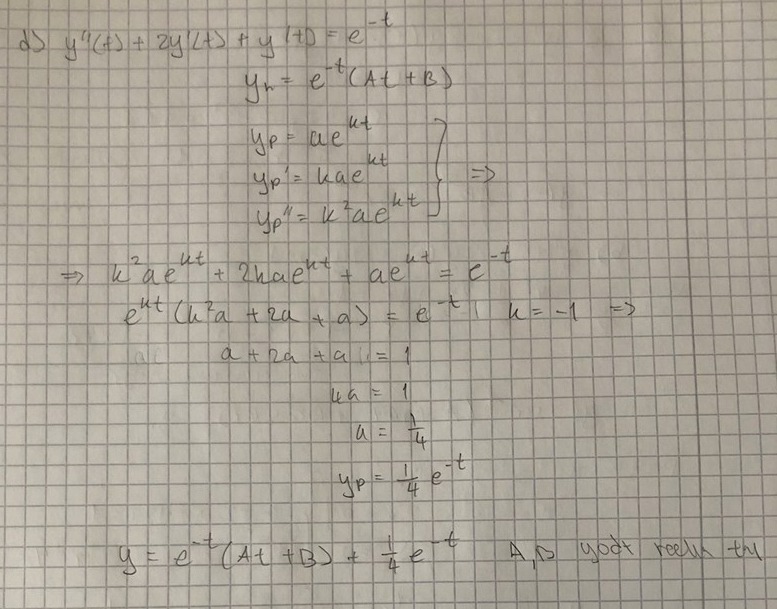 d) y''(t) + 2y'(t) + y(t) = e^-t
yh = e^-t (At + B)
yp = ae^kt
yp' = kae^kt } =>
yp'' = k²ae^kt
=> k²ae^kt + 2kae^kt + ae^kt = e^-t
e^kt (k²a + 2a + a) = e^-t | k = -1 =>
a + 2a + a = 1
4a = 1
a = 1/4
yp = 1/4 e^-t
y = e^-t (At + B) + 1/4 e^-t A, B